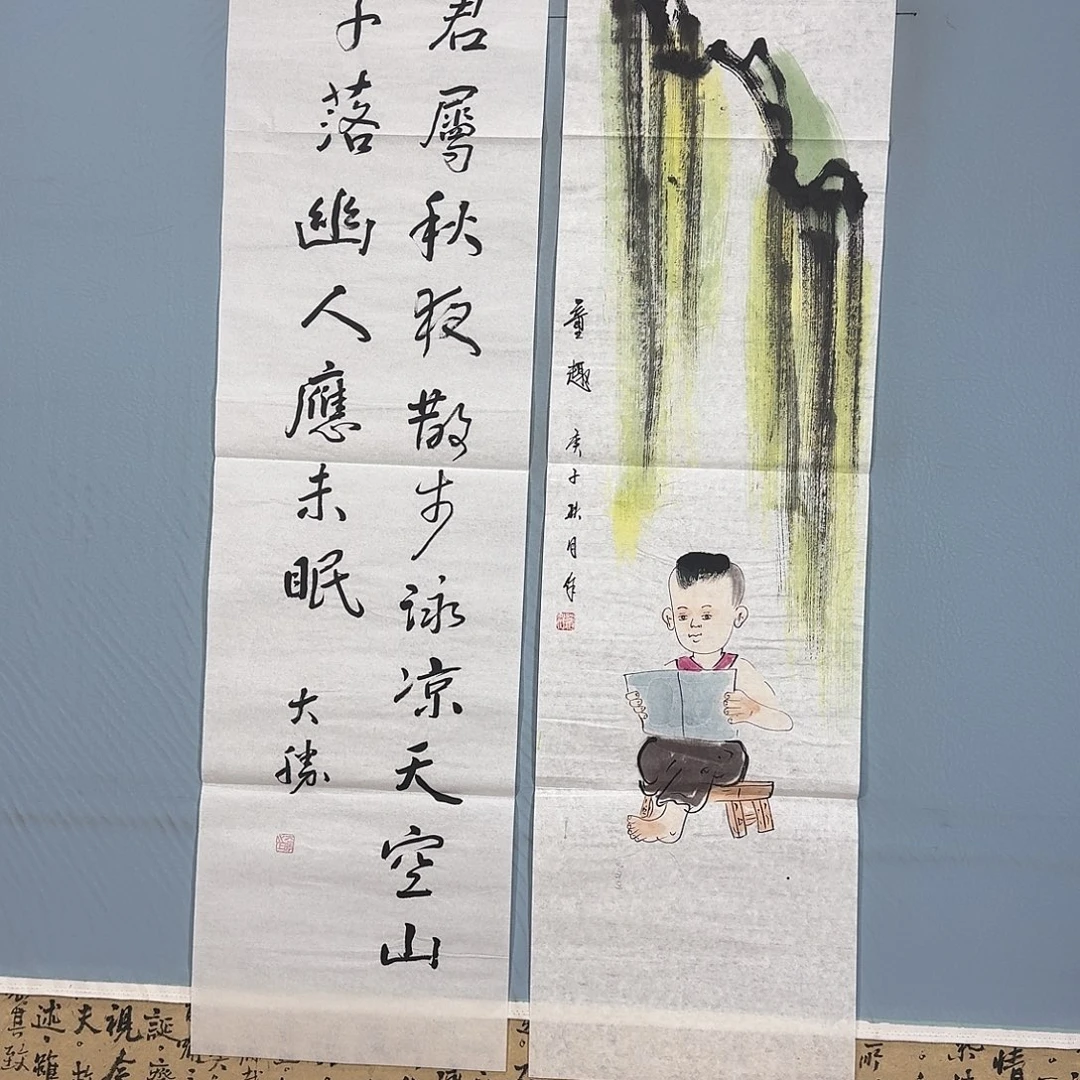 君屬秋夜散步詠凉天空山
子落幽人應未眠
大勝
童趣
庚子秋月
情
所
誕齊
視
夫
述雖
其致